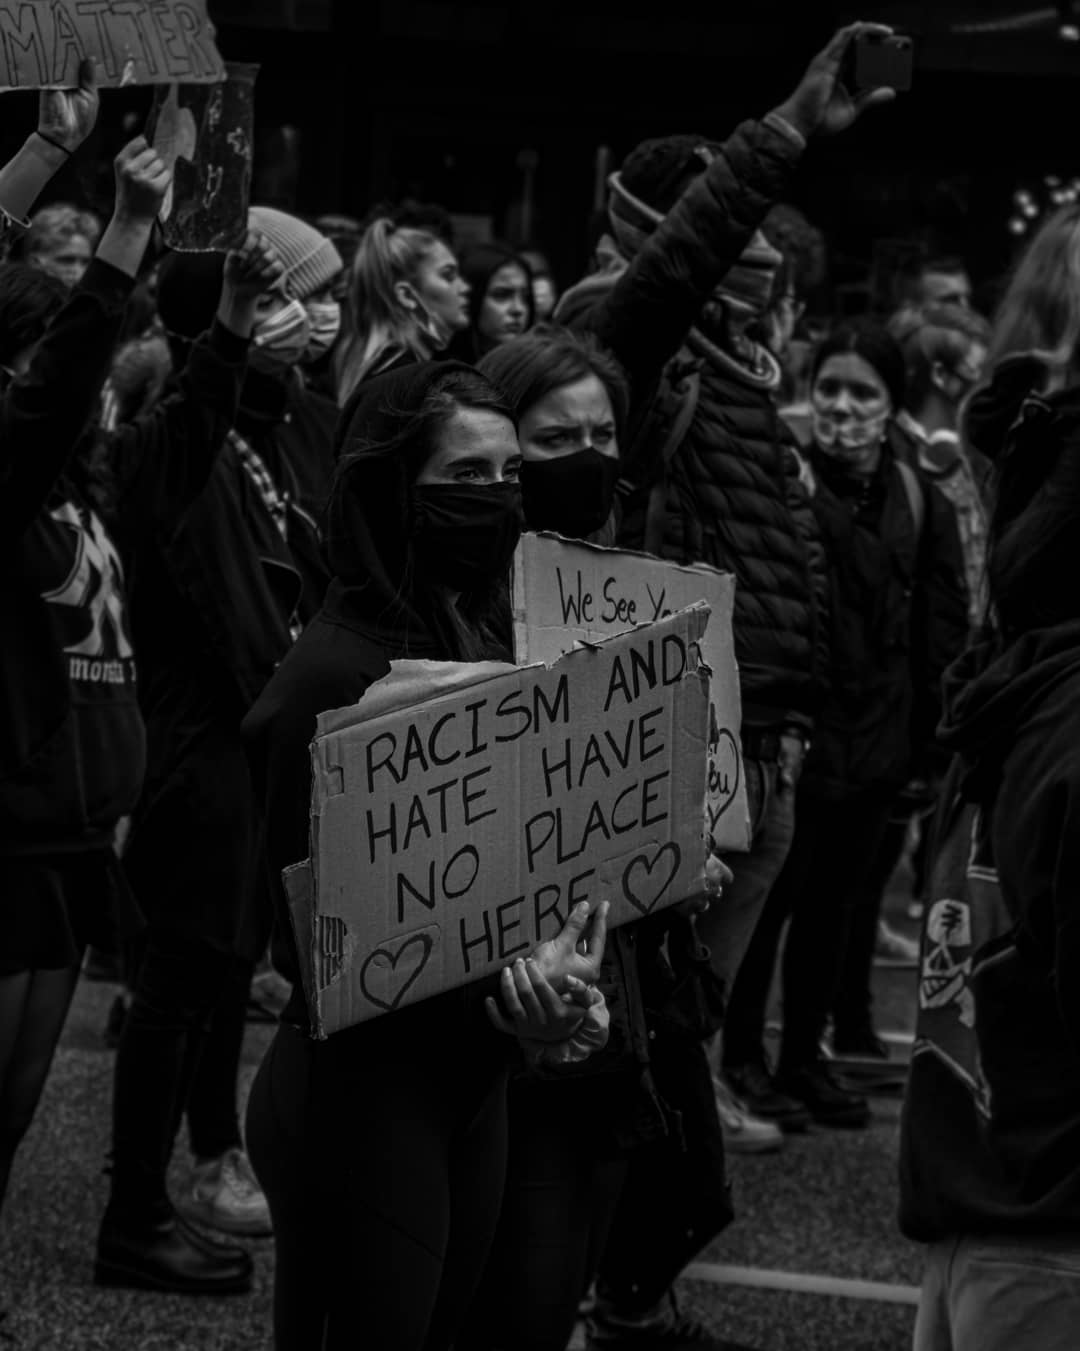 MATTER
We See
RACISM AND
HATE HAVE
NO PLACE
HERE